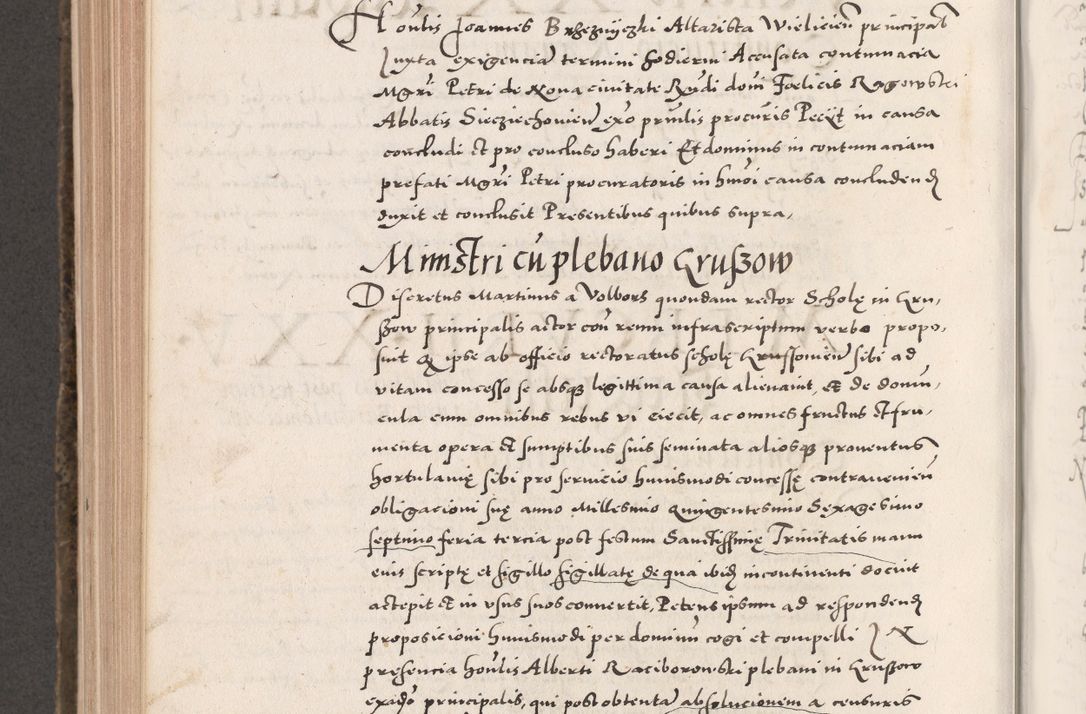 Honlis Joannes Brzeznyczki Altarista Wieliciens principalis
Juxta exigenciam termini hodierni Accusata contumacia
Mgri Petri de Nova civitate Rndi domi Foelicis Rogowski
Abbatis Siecziechowien ex prinlis procuris Peciit in causa
concludi et pro concluso haberi Et dominus in contumaciam
prefati Mgri Petri procuratoris in hmoi causa concludend
duxit et conclusit Presentibus quibus supra,
Ministri cu plebano Gruszow
Discretus Martinus a Wolbors quondam rector Scholę in Gru-
szow principalis actor con reum infrascriptum verbo propo-
suit Q ipse ab officio rectoratus scholę Grussowien sibi ad
vitam concesso se absq legittima causa alienavit, et de domun-
cula cum omnibus rebus vi eiecit, ac omnes fructus et fru-
menta opera et sumptibus suis seminata aliosq proventus
hortulanię sibi pro servicio huiusmodi concessę contravenien
obligacioni suę anno Millesimo Quingentesimo Sexagesimo
septimo feria tercia post festum Sanctissimę Trinitatis manu
eius scriptę et sigillo sigillatę de qua ibid incontinenti docuit
accepit et in usus suos convertit, Petens ipsum ad respondend
proposicioni huiusmodi per dominum cogi et compelli IN
presencia honlis Alberti Raciborowski plebani in Grussow
exadvo principalis, qui post obtentam absolucionem a censuris